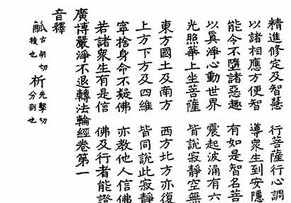 精進修定及智慧　行菩薩行心調
以諸相應方便智　導衆生到安隱
能令不墮諸惡趣　有如是智名菩
以真淨心動世界　震起波涌有六
光照華上坐菩薩　說寂靜空無
東方國土及南方　西方北方亦復
上方下方及四維　皆同說此寂靜
寧捨身命不疑佛　亦教他人信佛
若諸衆生有是信　佛及行者能證
廣博嚴淨不退轉法輪經卷第一
音釋
切　也　析　先擊切　分剖也